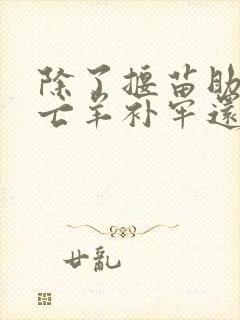 除了揠苗助
亡羊补牢还
廿亂